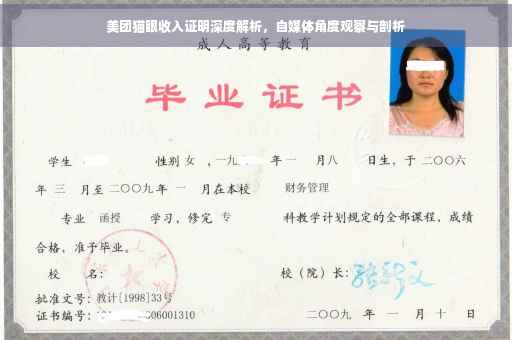 美团猫眼收入证明深度解析，自媒体角度观察与剖析
成人高等教育
毕业证书
学生 性别 女 ，一九 年 一 月 八 日生，于 二〇〇六
年 三 月至 二〇〇九 年 一 月在本校 财务管理
专业 函授 学习，修完 专 科教学计划规定的全部课程，成绩
合格，准予毕业。
校 名： 校（院）长：
批准文号：教计[1998]33号
证书编号： 06001310 二〇〇九 年 一 月 十 日